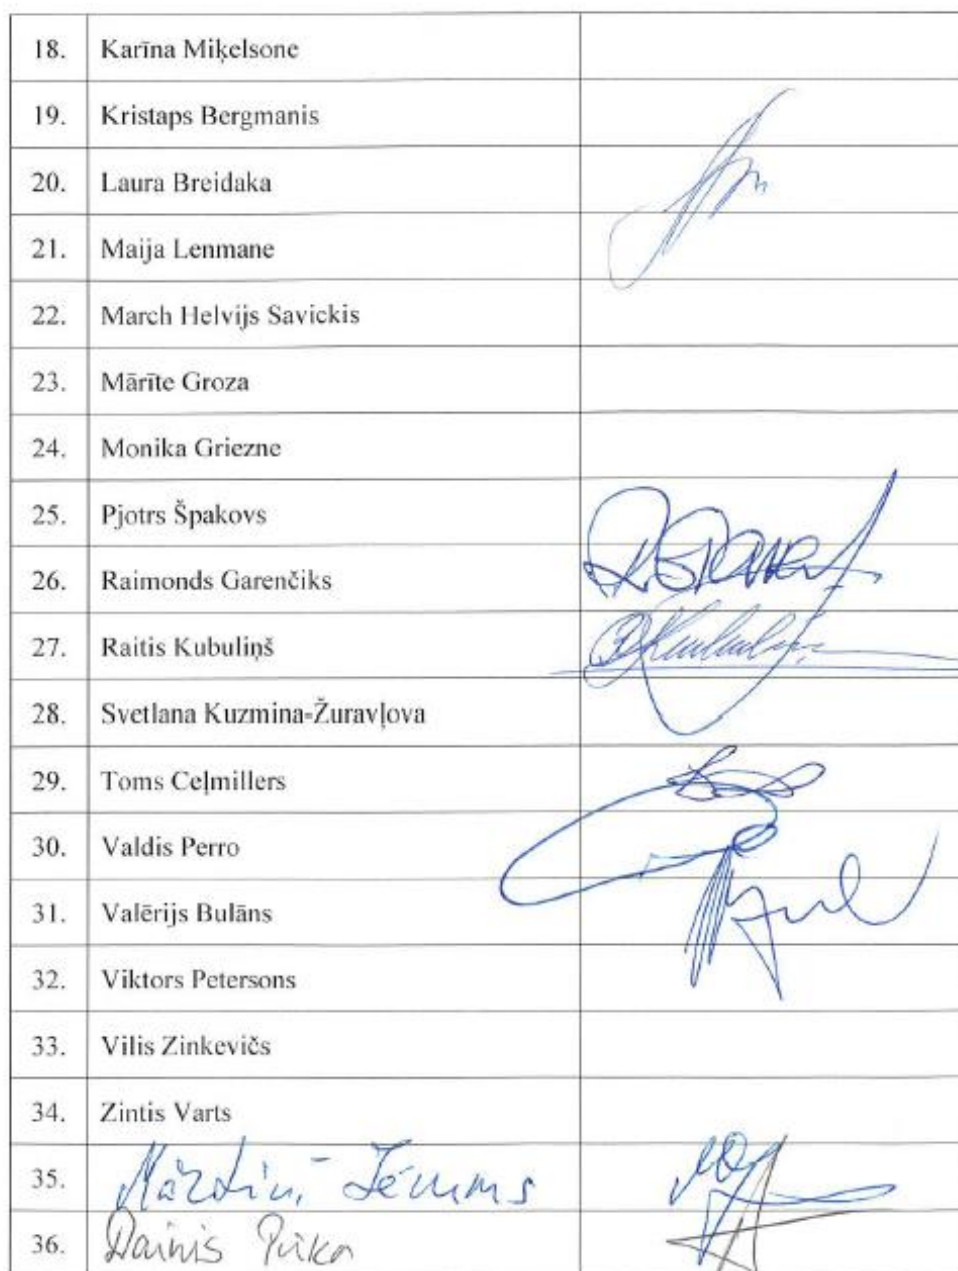 18. Karīna Miķelsone
19. Kristaps Bergmanis
20. Laura Breidaka
21. Maija Lenmane
22. March Helvijs Savickis
23. Mārīte Groza
24. Monika Griezne
25. Pjotrs Špakovs
26. Raimonds Garenčiks
27. Raitis Kubuliņš
28. Svetlana Kuzmina-Žuravļova
29. Toms Ceļmillers
30. Valdis Perro
31. Valērijs Bulāns
32. Viktors Petersons
33. Vilis Zinkevičs
34. Zintis Varts
35.
36. Dainis